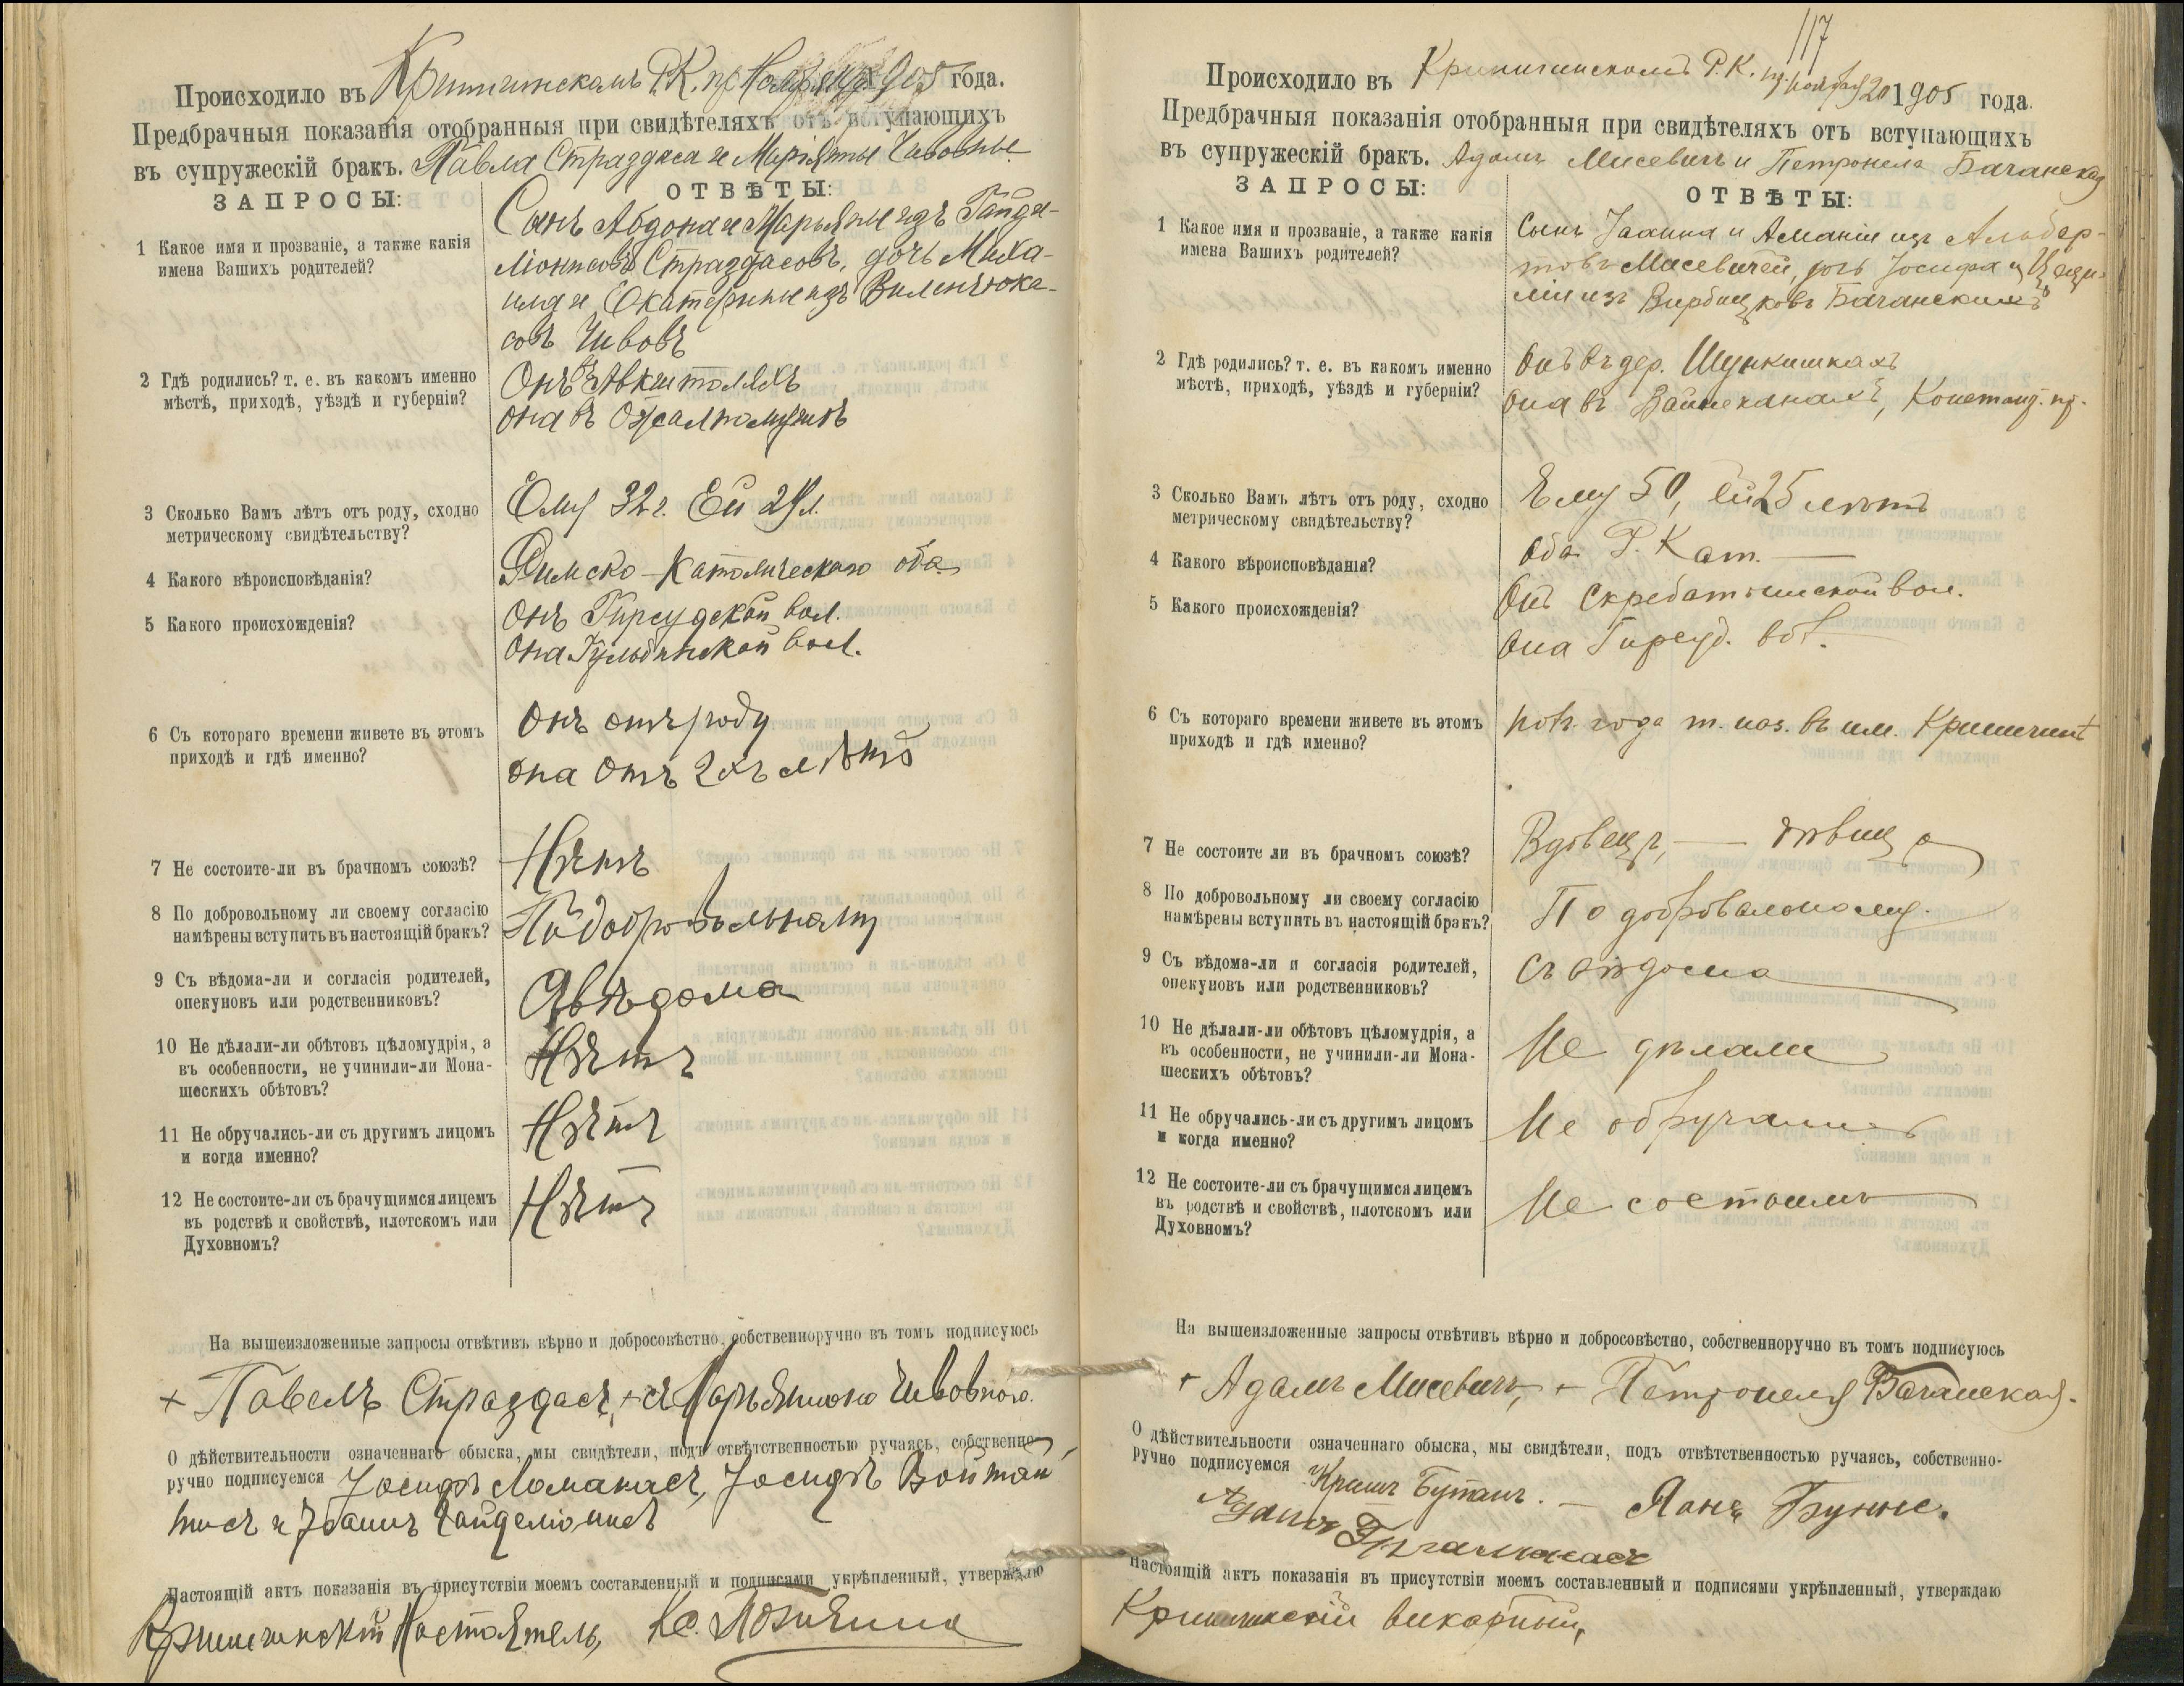 Происходило въ Криничинскомъ Р.К. пр. Ноября 1905 года.
Предбрачныя показанія отобранныя при свидѣтеляхъ отъ вступающихъ
въ супружескій бракъ. Павла Страздаса и Маріянны
ЗАПРОСЫ: ОТВѢТЫ:
1 Какое имя и прозваніе, а также какія
имена Вашихъ родителей?
Сынъ Абдона и Марьяны изъ Гайде-
ліонисовъ Страздасовъ, дочь Миха-
ила и Екатерины изъ Виленчюка-
совъ Чивовъ
2 Гдѣ родились? т. е. въ какомъ именно
мѣстѣ, приходѣ, уѣздѣ и губерніи?
Онъ въ
она въ
3 Сколько Вамъ лѣтъ отъ роду, сходно
метрическому свидѣтельству?
Ему 32 г. Ей л.
4 Какого вѣроисповѣданія?
Римско-Католическаго оба
5 Какого происхожденія?
Онъ Гирсудской вол.
Она вол.
6 Съ котораго времени живете въ этомъ
приходѣ и гдѣ именно?
Онъ отъ роду
она отъ 2хъ лѣтъ
7 Не состоите-ли въ брачномъ союзѣ?
Нѣтъ
8 По добровольному ли своему согласію
намѣрены вступить въ настоящій бракъ?
По добровольному
9 Съ вѣдома-ли и согласія родителей,
опекуновъ или родственниковъ?
вѣдома
10 Не дѣлали-ли обѣтовъ цѣломудрія, а
въ особенности, не учинили-ли Мона-
шескихъ обѣтовъ?
Нѣтъ
11 Не обручались-ли съ другимъ лицомъ
и когда именно?
Нѣтъ
12 Не состоите-ли съ брачущимся лицемъ
въ родствѣ и свойствѣ, плотскомъ или
Духовномъ?
Нѣтъ
На вышеизложенные запросы отвѣтивъ вѣрно и добросовѣстно, собственноручно въ томъ подписуюсь
+ Павелъ Страздасъ, + Чивовною.
О дѣйствительности означеннаго обыска, мы свидѣтели, подъ отвѣтственностью ручаясь, собственно-
ручно подписуемся Іосифъ Ломанасъ, Іосифъ Войтан-
тисъ и Іоаннъ Гайделіонисъ
Настоящій актъ показанія въ присутствіи моемъ составленный и подписами укрѣпленный, утверждаю
Криничинскій Настоятель, Кс.
117
Происходило въ Криничинскомъ Р.К. пр. ноября 20 1905 года.
Предбрачныя показанія отобранныя при свидѣтеляхъ отъ вступающихъ
въ супружескій бракъ. Адамъ Мисевичъ и Петронела Бачанская
ЗАПРОСЫ: ОТВѢТЫ:
1 Какое имя и прозваніе, а также какія
имена Вашихъ родителей?
Сынъ Іоанна и Аманіи изъ Альбер-
товъ Мисевичей, дочь Іосифа и Цеци-
ліи изъ Вирбицковъ Бачанскихъ
2 Гдѣ родились? т. е. въ какомъ именно
мѣстѣ, приходѣ, уѣздѣ и губерніи?
Онъ въ дер. Шункишкахъ
Она въ пр.
3 Сколько Вамъ лѣтъ отъ роду, сходно
метрическому свидѣтельству?
Ему 50, ей 25 лѣтъ
4 Какого вѣроисповѣданія?
Оба Р. Кат.
5 Какого происхожденія?
Онъ Скребатишской вол.
Она Гирсуд. вол.
6 Съ котораго времени живете въ этомъ
приходѣ и гдѣ именно?
года т. наз. въ им. Криничинѣ
7 Не состоите ли въ брачномъ союзѣ?
Вдовецъ, — дѣвица
8 По добровольному ли своему согласію
намѣрены вступить въ настоящій бракъ?
По добровольному.
9 Съ вѣдома-ли и согласія родителей,
опекуновъ или родственниковъ?
Съ вѣдома
10 Не дѣлали-ли обѣтовъ цѣломудрія, а
въ особенности, не учинили-ли Мона-
шескихъ обѣтовъ?
Не дѣлали
11 Не обручались-ли съ другимъ лицомъ
и когда именно?
Не обручались
12 Не состоите-ли съ брачущимся лицемъ
въ родствѣ и свойствѣ, плотскомъ или
Духовномъ?
Не состоимъ
На вышеизложенные запросы отвѣтивъ вѣрно и добросовѣстно, собственноручно въ томъ подписуюсь
+ Адамъ Мисевичъ, + Петронеля Бачанская.
О дѣйствительности означеннаго обыска, мы свидѣтели, подъ отвѣтственностью ручаясь, собственно-
ручно подписуемся Бутанъ. — Янъ Бунис.
Адамъ
Настоящій актъ показанія въ присутствіи моемъ составленный и подписями укрѣпленный, утверждаю
Криничинскій викарный,